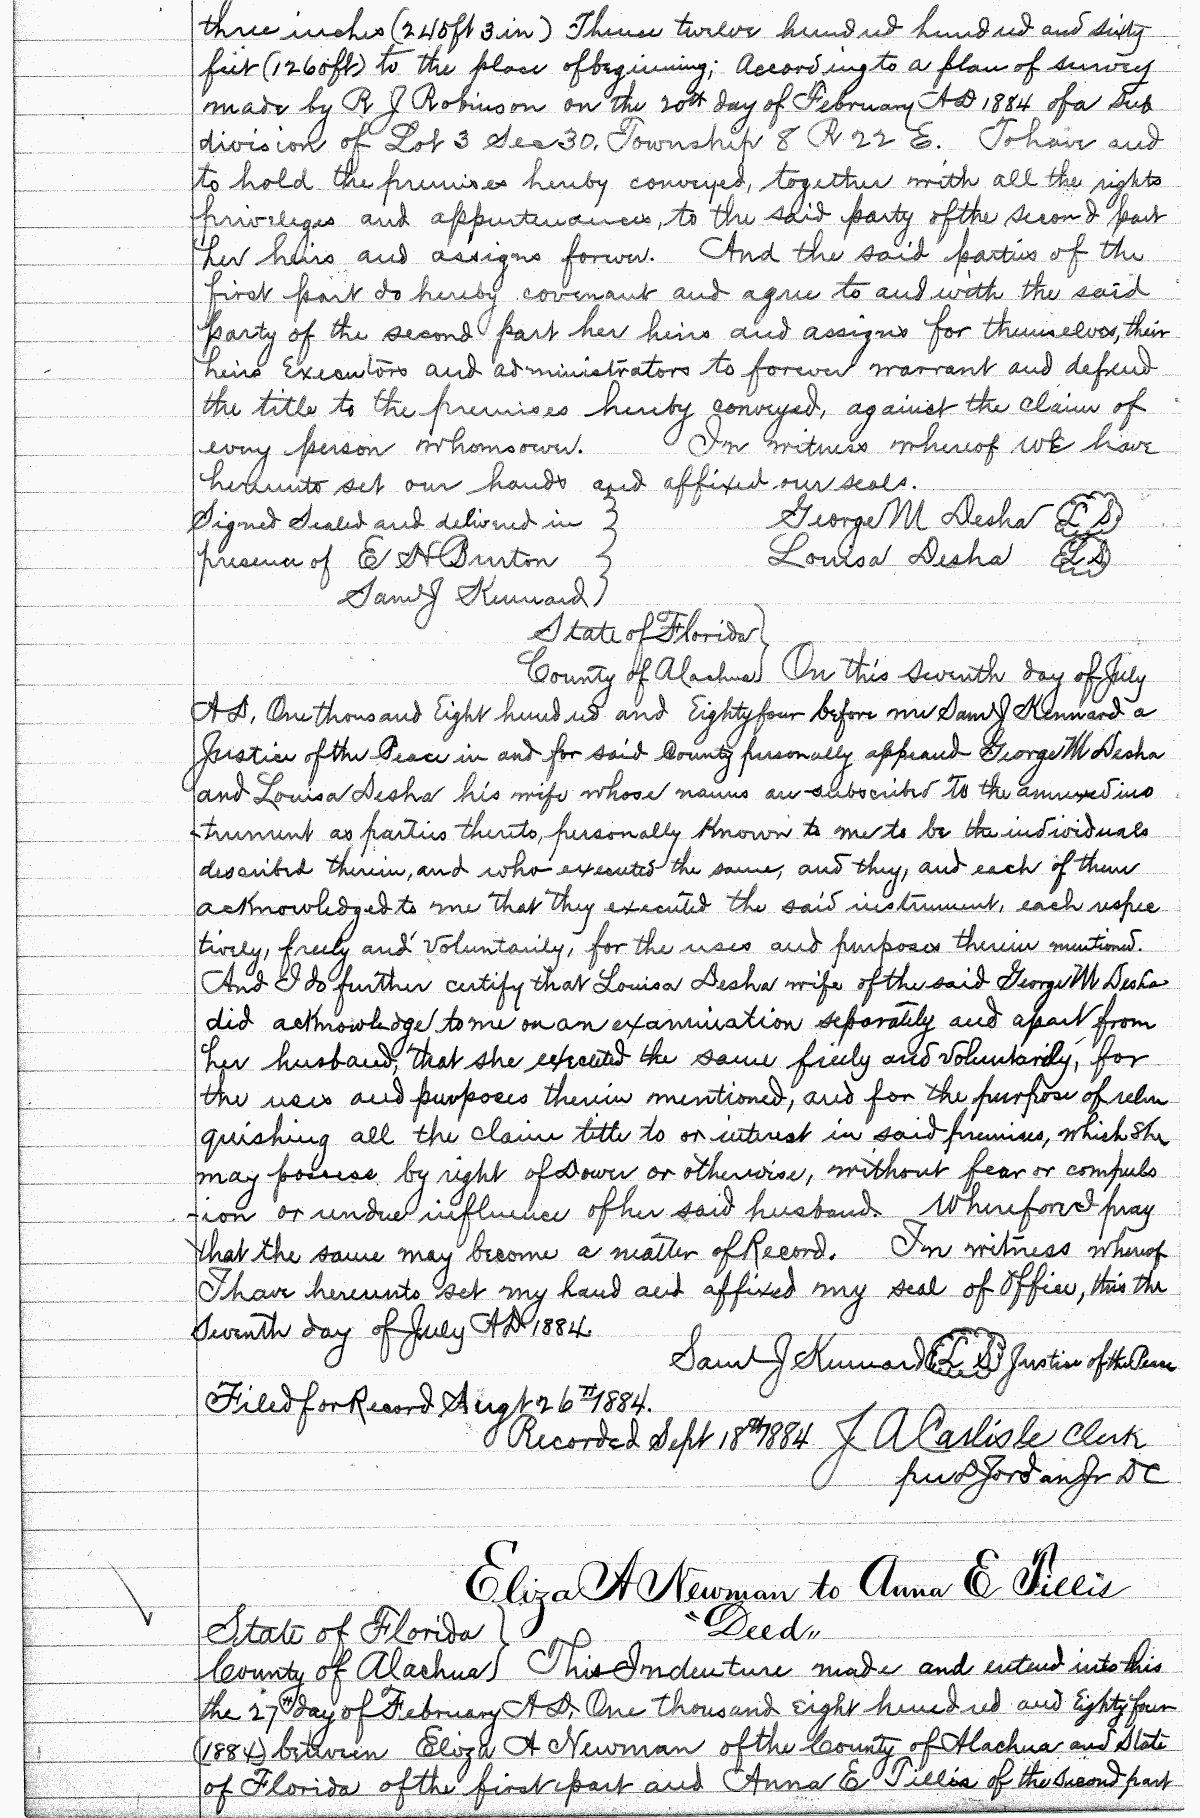 three inches (245ft 3in) Thence twelve hundred hundred and sixty
feet (1260ft) to the place of beginning; According to a plan of survey
made by R J Robinson on the 20th day of February AD 1884 of a Sub
division of Lot 3 Sec 30. Township 8 R 22 E. To have and
to hold the premises hereby conveyed, together with all the rights
privileges and appurtenances, to the said party of the second part
her heirs and assigns forever. And the said parties of the
first part do hereby covenant and agree to and with the said
party of the second part her heirs and assigns for themselves, their
heirs Executors and administrators to forever warrant and defend
the title to the premises hereby conveyed, against the claim of
every person whomsoever. In witness whereof we have
hereunto set our hands and affixed our seals.
Signed Sealed and delivered in } George M Desha (L S)
presence of E H Burton } Louisa Desha (L S)
Saml J Kennard )
State of Florida }
County of Alachua } On this seventh day of July
A D. One thousand Eight hundred and Eighty four before me Saml J Kennard a
Justice of the Peace in and for said County personally appeared George M Desha
and Louisa Desha his wife whose names are subscribed to the annexed ins
-trument as parties thereto, personally Known to me to be the individuals
described therein, and who executed the same, and they, and each of them
acKnowledged to me that they executed the said instrument, each respec
tively, freely and voluntarily, for the uses and purposes therein mentioned.
And I do further certify that Louisa Desha wife of the said George M Desha
did acKnowledge to me on an examination separately and apart from
her husband, that she executed the same freely and voluntarily, for
the uses and purposes therein mentioned, and for the purpose of relin
quishing all the claim title to or interest in said premises, which she
may possess by right of Dower or otherwise, without fear or compuls
-ion or undue influence of her said husband. Wherefore I pray
that the same may become a matter of Record. In witness whereof
I have hereunto set my hand and affixed my seal of Office, this the
Seventh day of July AD 1884.
Saml J Kennard (L S) Justice of the Peace
Filed for Record Augt 26th 1884.
Recorded Sept 18th 1884 J A Carlisle Clerk
per D Jordan Jr DC
Eliza A Newman to Anna E Tillis
"Deed"
State of Florida )
County of Alachua } This Indenture made and entered into this
the 27th day of February A D. One thousand Eight hundred and Eighty four
(1884) between Eliza A Newman of the County of Alachua and State
of Florida of the first part and Anna E Tillis of the second part